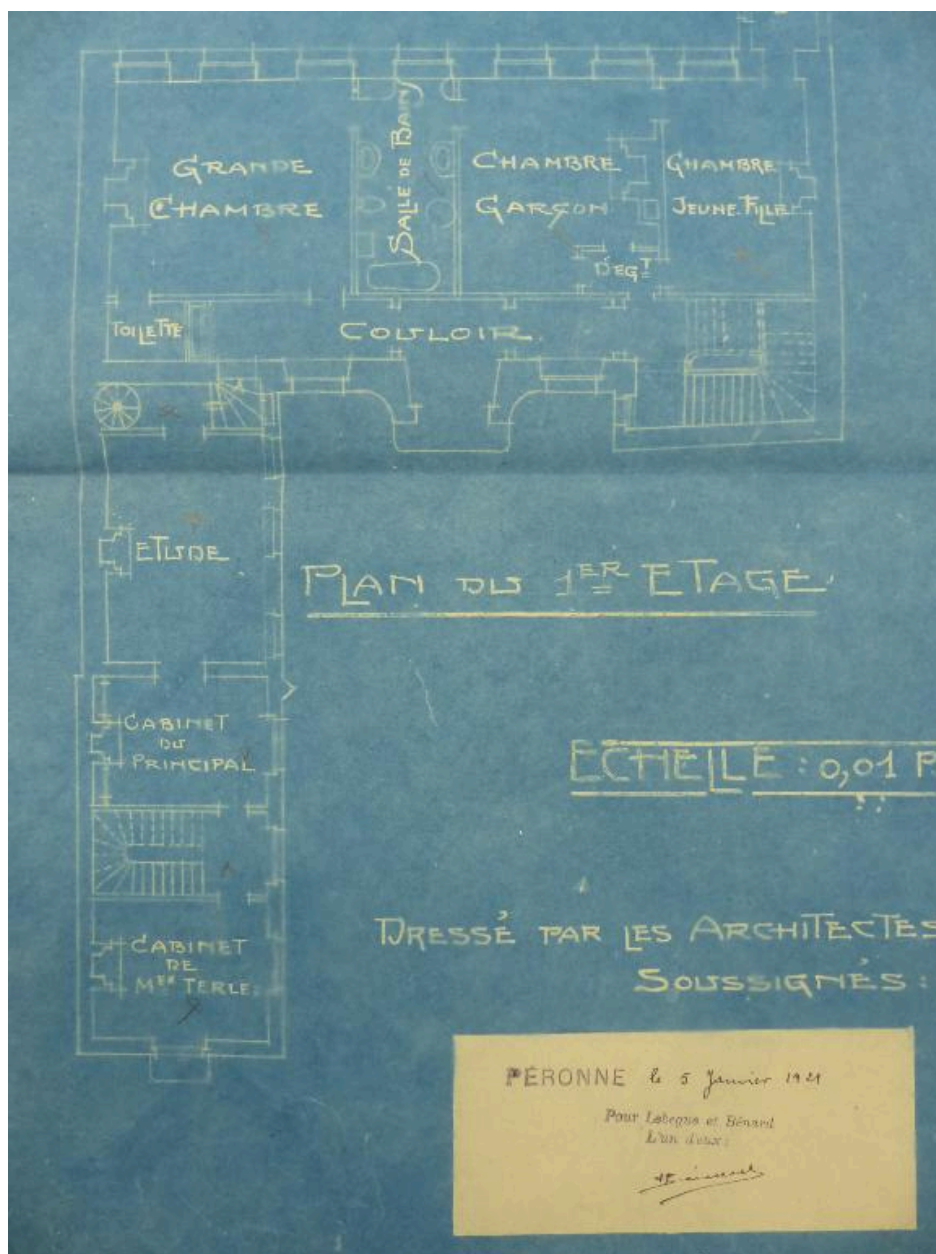 GRANDE
CHAMBRE
SALLE DE BAIN
CHAMBRE
GARÇON
CHAMBRE
JEUNE FILLE
DÉGT
TOILETTE
COULOIR.
ETUDE
PLAN DU 1ER ETAGE
CABINET
DU
PRINCIPAL
ECHELLE : 0,01 P
DRESSÉ PAR LES ARCHITECTES
SOUSSIGNÉS :
CABINET
DE
MER TERLE.
PÉRONNE le 5 Janvier 1921
Pour Lebègue et Bénard
L'un d'eux :